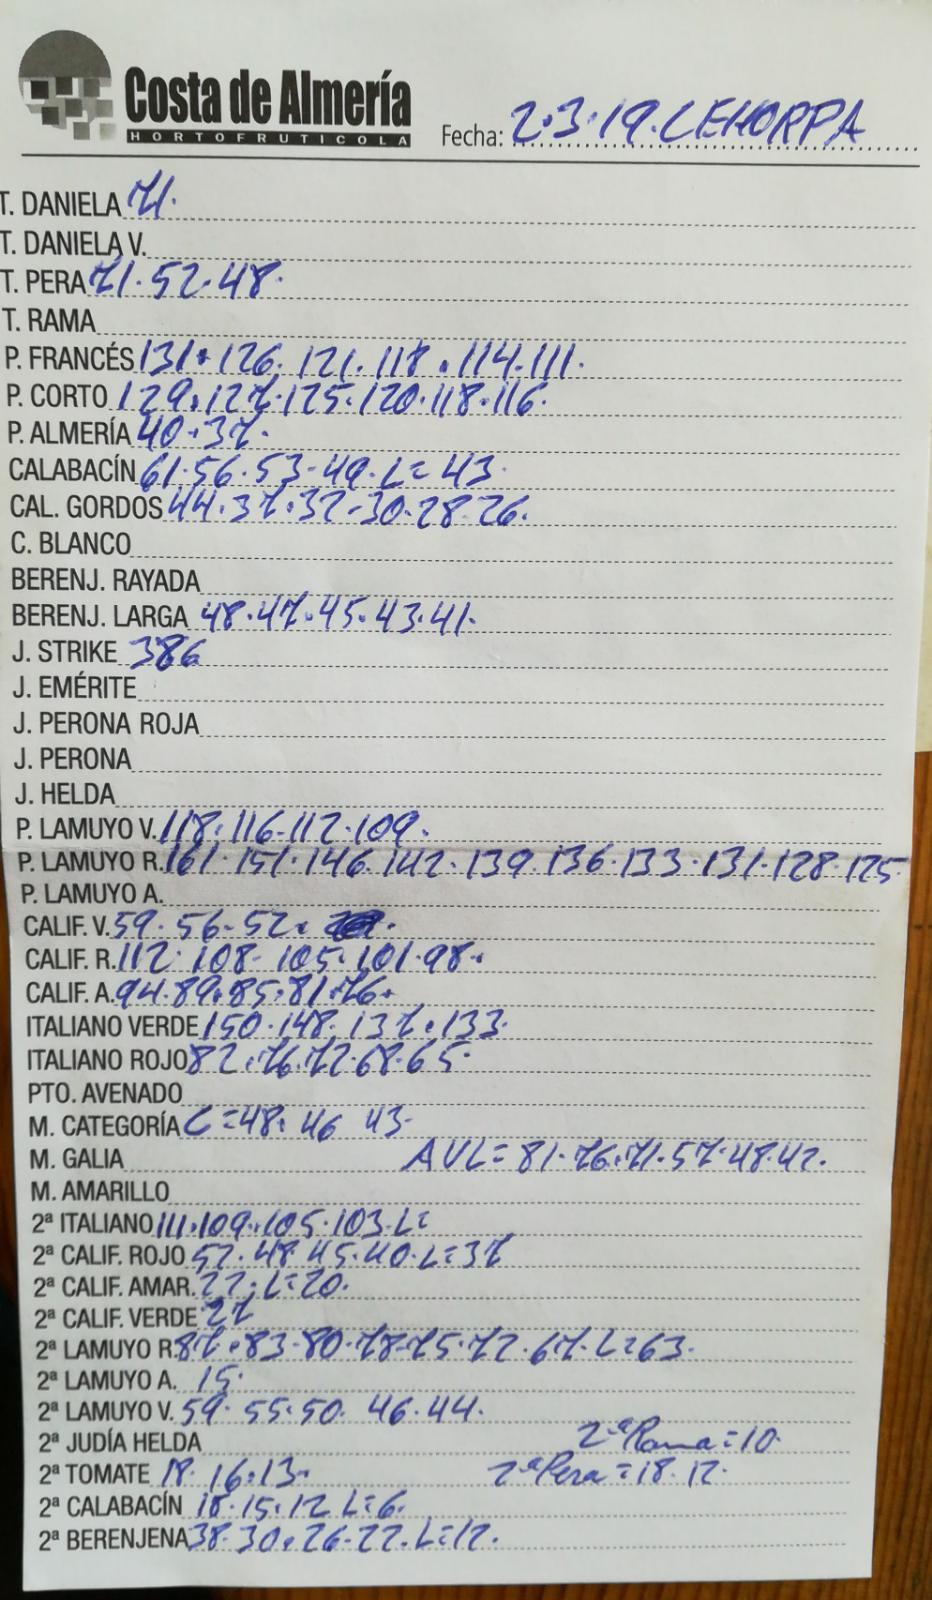 Costa de Almería
HORTOFRUTICOLA
Fecha: 2.3.19. CEHORPA
T. DANIELA 71.
T. DANIELA V.
T. PERA 71.52.48.
T. RAMA
P. FRANCÉS 131.126.121.118.114.111.
P. CORTO 129.127.125.120.118.116.
P. ALMERÍA 40.37.
CALABACÍN 61.56.53-49.L=43.
CAL. GORDOS 44.37.32-30.28.26.
C. BLANCO
BERENJ. RAYADA
BERENJ. LARGA 48.47.45.43.41.
J. STRIKE 386
J. EMÉRITE
J. PERONA ROJA
J. PERONA
J. HELDA
P. LAMUYO V. 118.116-112.109.
P. LAMUYO R. 161.151.146.142.139.136.133.131.128.125
P. LAMUYO A.
CALIF. V. 59.56-52.
CALIF. R. 112.108-105.101.98.
CALIF. A. 94.89.85.81.76.
ITALIANO VERDE 150.148.137.133.
ITALIANO ROJO 82.76.72.68.65.
PTO. AVENADO
M. CATEGORÍA C=48.46 43.
M. GALIA AVL=81.76.71.57.48.42.
M. AMARILLO
2ª ITALIANO 111.109.105.103.L=
2ª CALIF. ROJO 57.48 45.40.L=37
2ª CALIF. AMAR. 22.L=20.
2ª CALIF. VERDE 27
2ª LAMUYO R. 87.83-80.78-75.72.67.L=63.
2ª LAMUYO A. 15.
2ª LAMUYO V. 59.55.50.46.44.
2ª JUDÍA HELDA 2ªRama=10.
2ª TOMATE 18.16.13. 2ªPera=18.12.
2ª CALABACÍN 18.15.12 L=6.
2ª BERENJENA 38.30.26-22.L=12.